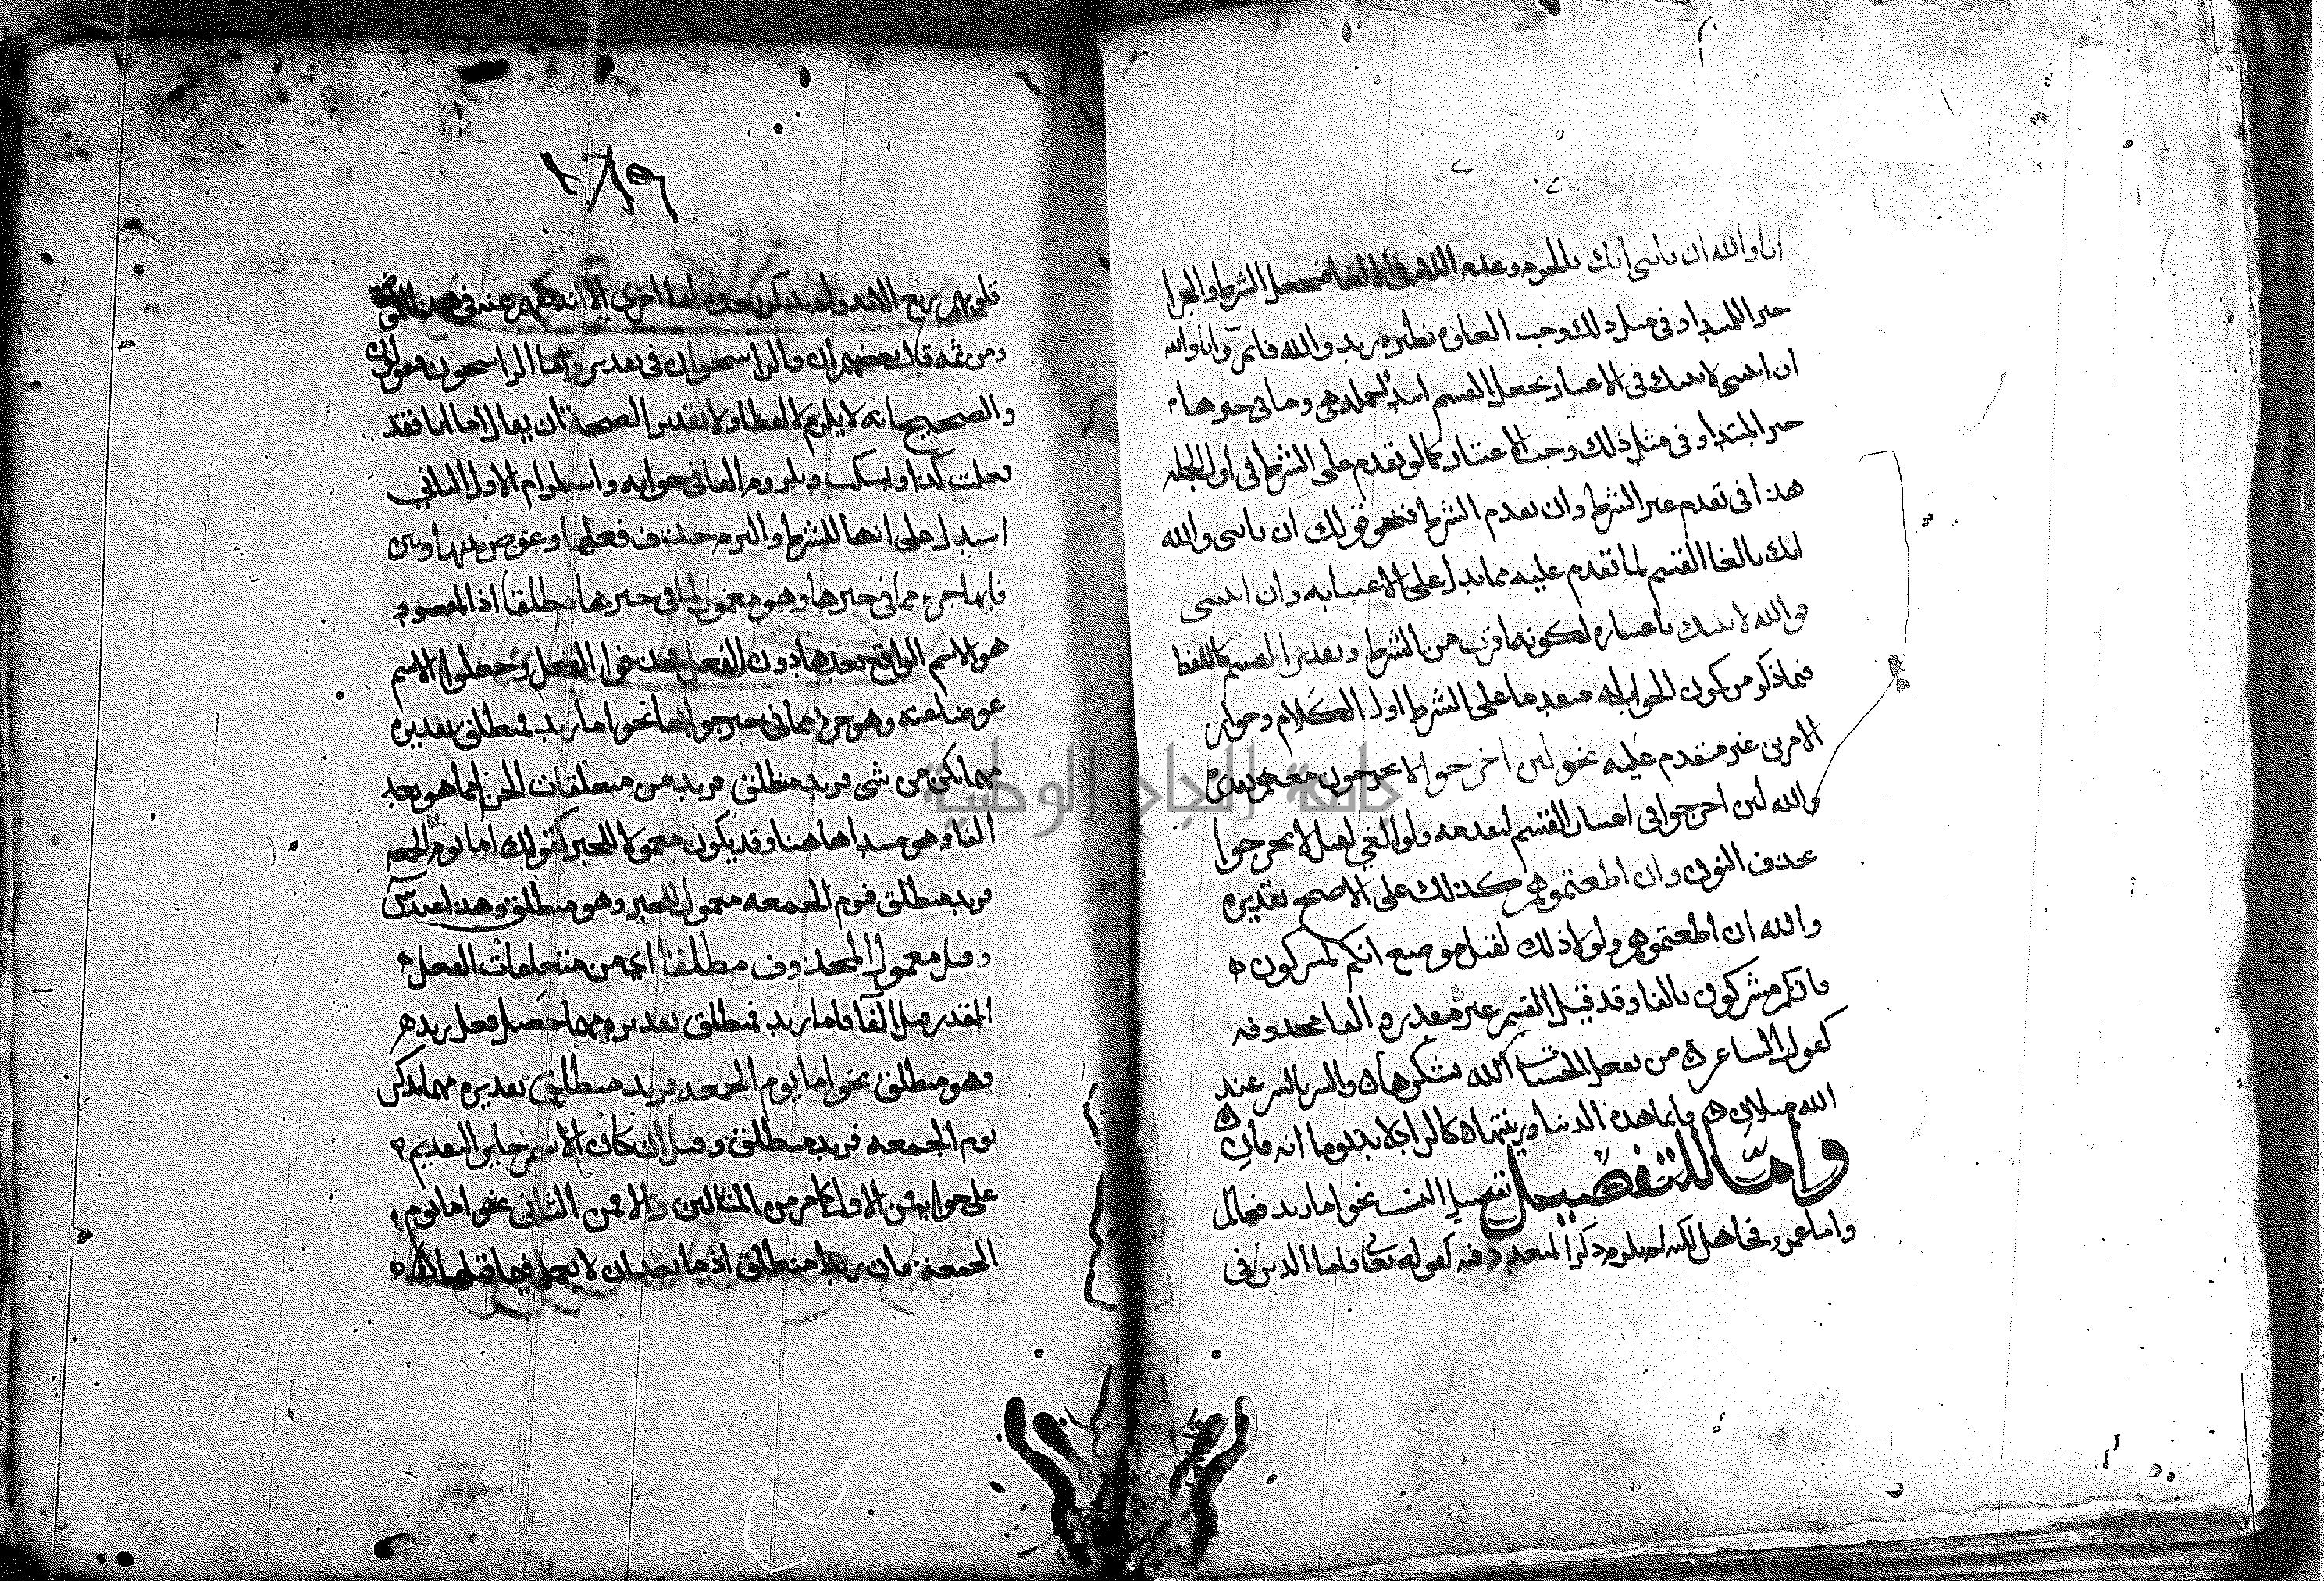 انا والله ان تاتني اتك بالجزم وعدم اللام في الالغا فتجعل الشرط والجزا
خبر المبتدا وفي مثل ذلك وجب الغاوه نظيره زيد والله قائم وانا والله
ان اتيتني لاتينك في الاعتبار بجعل القسم لجمله هي وما في حيزها
خبر المبتدا وفي مثل ذلك وجب الاعتبار كما لو تقدم على الشرط في اول الجمله
هذا في تقدم غير الشرط وان تقدم الشرط فنحو قولك ان تاتني والله
اتك بالغا القسم لما تقدم عليه مما يدل على الاعتنا به وان اتيتني
فوالله لاتينك باعتباره لكونه اقرب من الشرط وتقدير القسم كاللفظ
فيما ذكر من كون الجواب له متقدما على الشرط اول الكلام وجواز
الامرين غير متقدم عليه نحو لئن اخرجوا لا يخرجون معهم تقديره
والله لئن اخرجوا في اعتبار القسم لتقدمه ولو الغي لقيل لا يخرجوا
بحذف النون وان اطعتموهم كذلك على الاصح تقديره
والله ان اطعتموهم ولولا ذلك لقيل موضع انكم لمشركون
فانكم مشركون بالفا وقد قيل القسم غير مقدر والفا محذوفه
كقول الشاعر من يفعل الحسنات الله يشكرها والشر بالشر عند
الله مثلان فانما هذه الدنيا وزينتها كالزاد لا بد يوما انه فان
واما للتفصيل تفصيل النسب نحو اما زيد فعالم
واما عمرو فجاهل لكنه لم يلزم ذكر المتعدد فيه كقوله تعالى فاما الذين في
١٨٩
قلوبهم زيغ الايه ولم يذكر بعده اما اخرى الا انه فهم عنه في هذا الموضع
ومن ثمه قال بعضهم ان والراسخون في تقدير واما الراسخون فيقولون
والصحيح انه لا يلزم لا لفظا ولا تقدير الصحة ان يقال اما انا فقد
فعلت كذا ويسكت وبلزوم الفا في جوابه واستلزام الاول للثاني
استدل على انها للشرط والتزم حذف فعلها وعوض بينها وبين
فايها جزء مما في حيزها وهو معمول لما في حيزها مطلقا اذ المقصود
هو الاسم الواقع بعدها دون الفعل فحذفوا الفعل وجعلوا الاسم
عوضا عنه وهو جزء مما في حيز جوابها نحو اما زيد فمنطلق تقديره
مهما يكن من شي فزيد منطلق فزيد من متعلقات الجزا مما هو بعد
الفا وهو مبتدا هاهنا وقد يكون معمولا للخبر كقولك اما يوم الجمعه
فزيد منطلق فيوم الجمعه معمول للخبر وهو منطلق وهذا عند
وقيل معمول المحذوف مطلقا اي من متعلقات الفعل
المقدر قبل الفا فاما زيد فمنطلق تقديره مهما حصل فعل زيد
فهو منطلق نحو اما يوم الجمعه فزيد منطلق تقديره مهما يذكر
يوم الجمعه فزيد منطلق وقيل ان كان الاسم جايز التقديم
على جوابه فمن الاول كما مر من المثالين والا فمن الثاني نحو اما يوم
الجمعه فان زيدا منطلق اذ ما بعد ان لا يعمل فيما قبلها
جامعة النجاح الوطنية